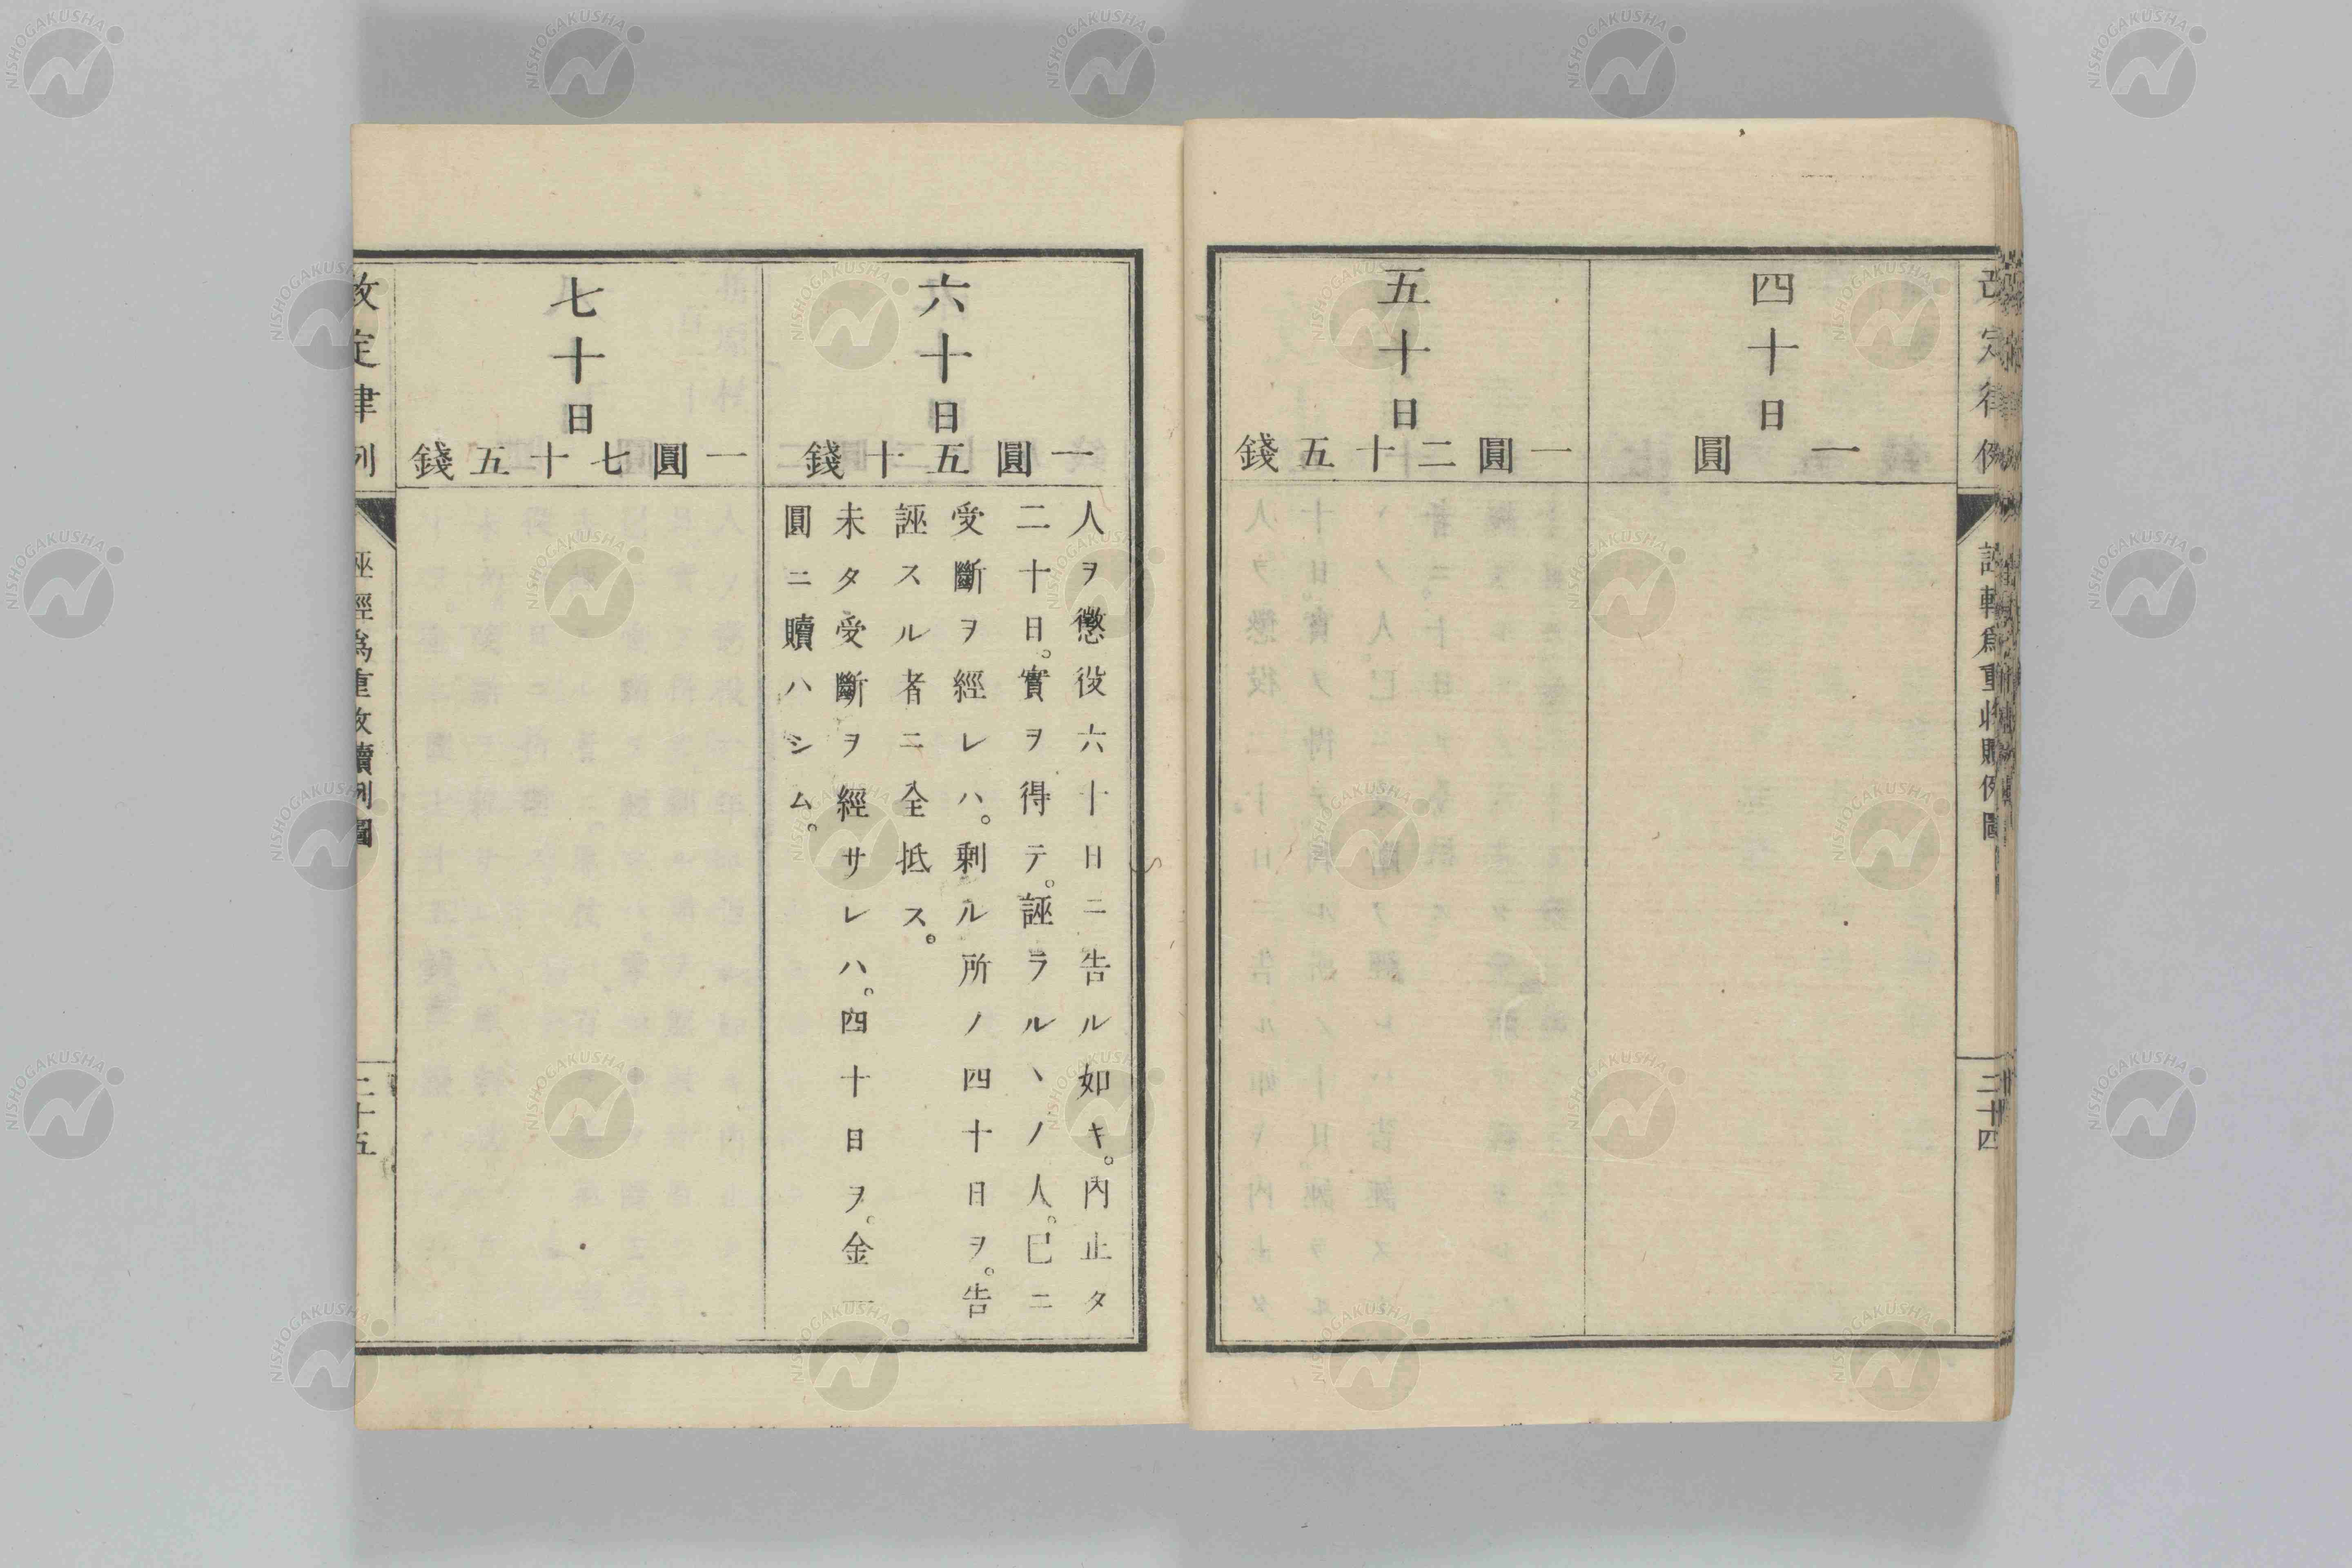 四十日
一圓
五十日
一圓二十五錢
六十日
一圓五十錢
人ヲ懲役六十日ニ告ル如キ。內止タ
二十日。實ヲ得テ。誣ラルヽノ人。已ニ
受斷ヲ經レハ。剩ル所ノ四十日ヲ。告
誣スル者ニ全抵ス。
未タ受斷ヲ經サレハ。四十日ヲ。金一
圓ニ贖ハシム。
七十日
一圓七十五錢
改定律例
誣輕爲重收贖例圖
二十四
改定律例
誣輕爲重收贖例圖
二十五
NISHOGAKUSHA